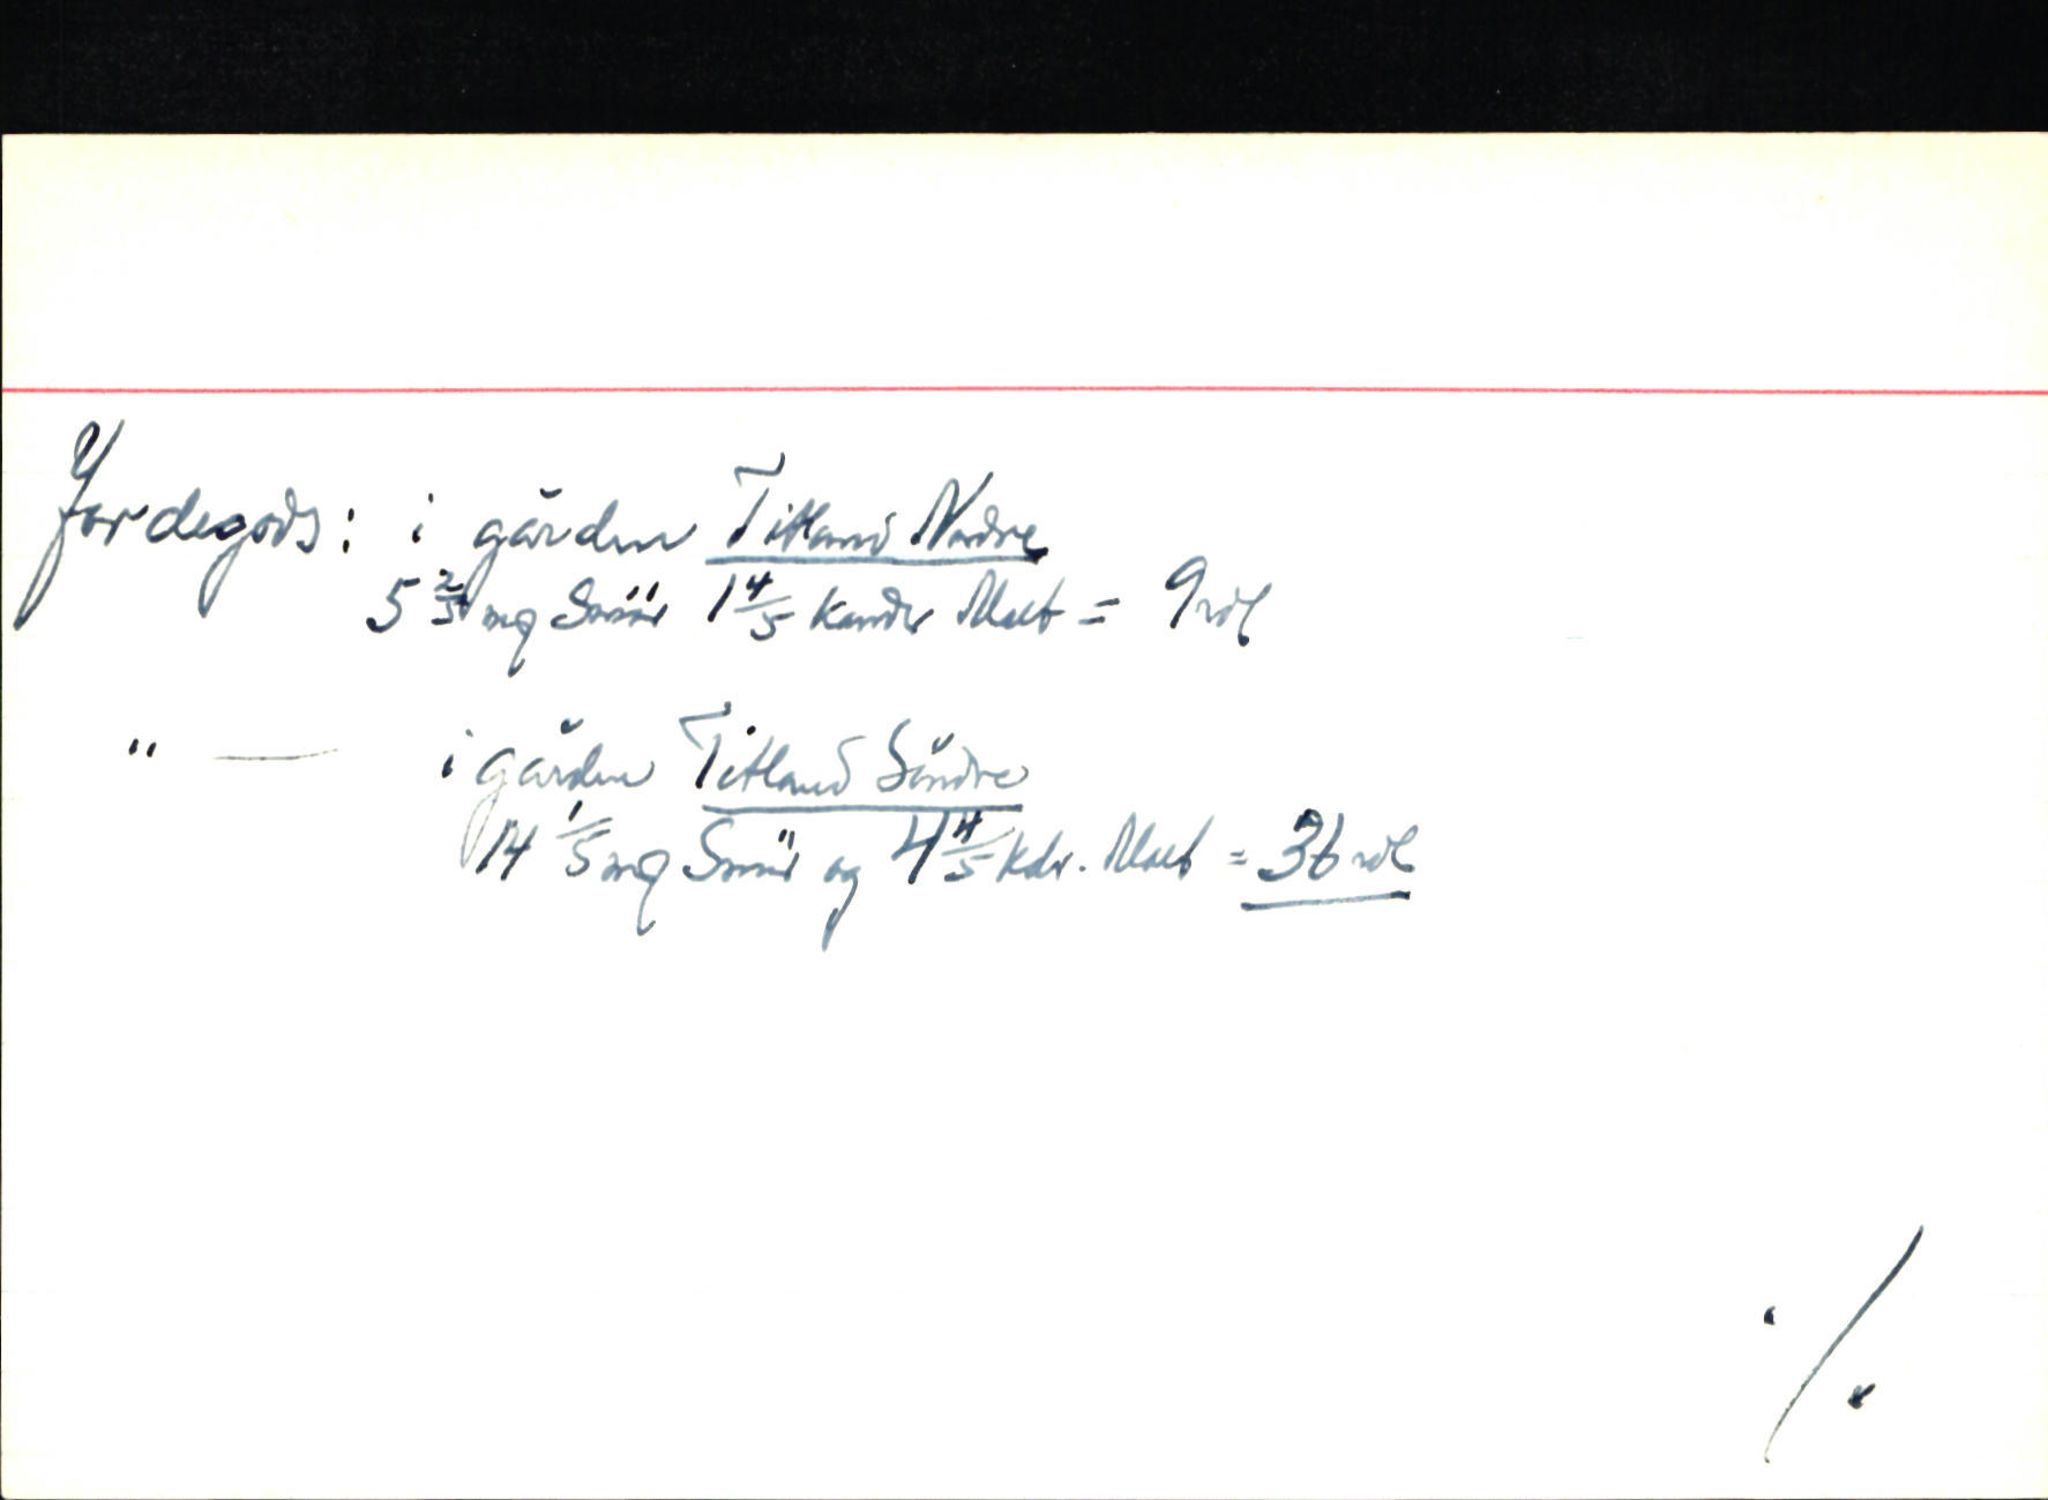 Jordegods: i gården Titland Nordre
5 2/5 mq Smör 1 4/5 Kander Malt = 9 rdl
" — i gården Titland Söndre
14 1/5 mq Smör og 4 4/5 Kdr. Malt = 36 rdl
./.